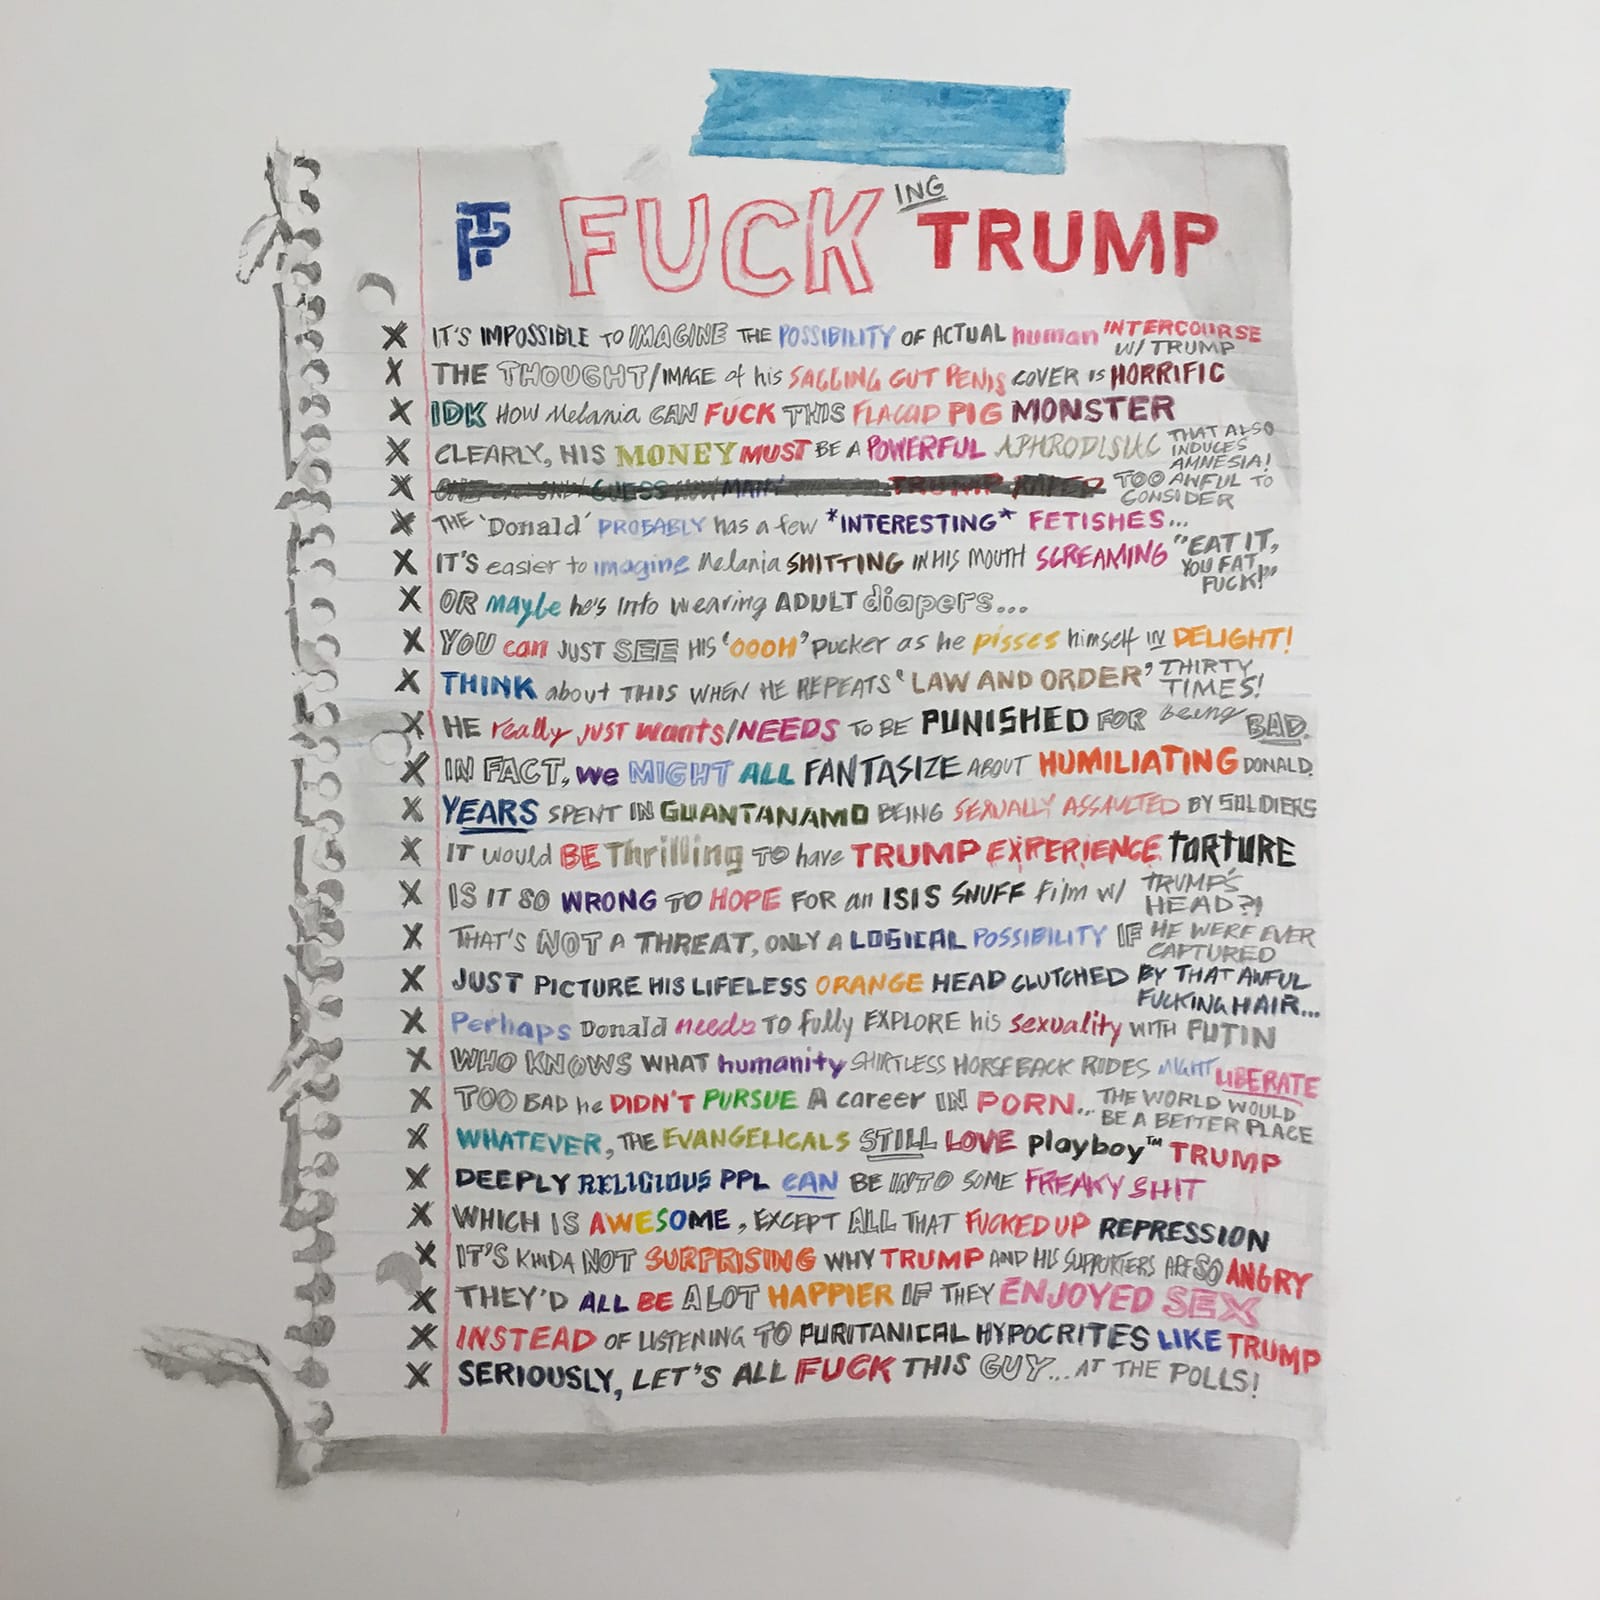 TP FUCKING TRUMP
X IT'S IMPOSSIBLE TO IMAGINE THE POSSIBILITY OF ACTUAL human INTERCOURSE W/ TRUMP
X THE THOUGHT/IMAGE of his SAGGING GUT PENIS COVER is HORRIFIC
X IDK HOW Melania CAN FUCK THIS FLACCID PIG MONSTER
X CLEARLY, HIS MONEY MUST BE A POWERFUL APHRODISIAC THAT ALSO INDUCES AMNESIA!
X GUESS HOW MANY TRUMP RAPED TOO AWFUL TO CONSIDER
X THE 'Donald' PROBABLY has a few *INTERESTING* FETISHES...
X IT'S easier to imagine Melania SHITTING IN HIS MOUTH SCREAMING "EAT IT, YOU FAT FUCK!"
X OR Maybe he's into wearing ADULT diapers...
X YOU can JUST SEE HIS 'OOOH' pucker as he pisses himself IN DELIGHT!
X THINK about THIS WHEN HE REPEATS 'LAW AND ORDER' THIRTY TIMES!
X HE really JUST wants/NEEDS TO BE PUNISHED FOR being BAD.
X IN FACT, we MIGHT ALL FANTASIZE ABOUT HUMILIATING DONALD.
X YEARS SPENT IN GUANTANAMO BEING SEXUALLY ASSAULTED BY SOLDIERS
X IT would BE Thrilling TO have TRUMP EXPERIENCE TORTURE
X IS IT SO WRONG TO HOPE FOR an ISIS SNUFF Film w/ TRUMP'S HEAD?!
X THAT'S NOT A THREAT, ONLY A LOGICAL POSSIBILITY IF HE WERE EVER CAPTURED
X JUST PICTURE HIS LIFELESS ORANGE HEAD CLUTCHED BY THAT AWFUL FUCKING HAIR...
X Perhaps Donald needs TO fully EXPLORE his sexuality WITH PUTIN
X WHO KNOWS WHAT humanity SHIRTLESS HORSEBACK RIDES MIGHT LIBERATE
X TOO BAD he DIDN'T PURSUE A career IN PORN... THE WORLD WOULD BE A BETTER PLACE
X WHATEVER, THE EVANGELICALS STILL LOVE playboy™ TRUMP
X DEEPLY RELIGIOUS PPL CAN BE INTO SOME FREAKY SHIT
X WHICH IS AWESOME, EXCEPT ALL THAT FUCKED UP REPRESSION
X IT'S KINDA NOT SURPRISING WHY TRUMP AND HIS SUPPORTERS ARE SO ANGRY
X THEY'D ALL BE A LOT HAPPIER IF THEY ENJOYED SEX
X INSTEAD OF LISTENING TO PURITANICAL HYPOCRITES LIKE TRUMP
X SERIOUSLY, LET'S ALL FUCK THIS GUY... AT THE POLLS!